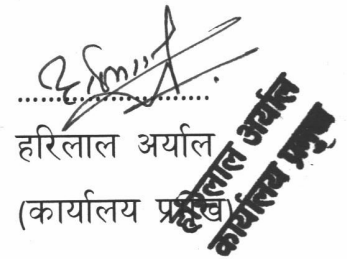 हरिलाल अर्याल
(कार्यालय प्रमुख)
हरिलाल अर्याल
कार्यालय प्रमुख